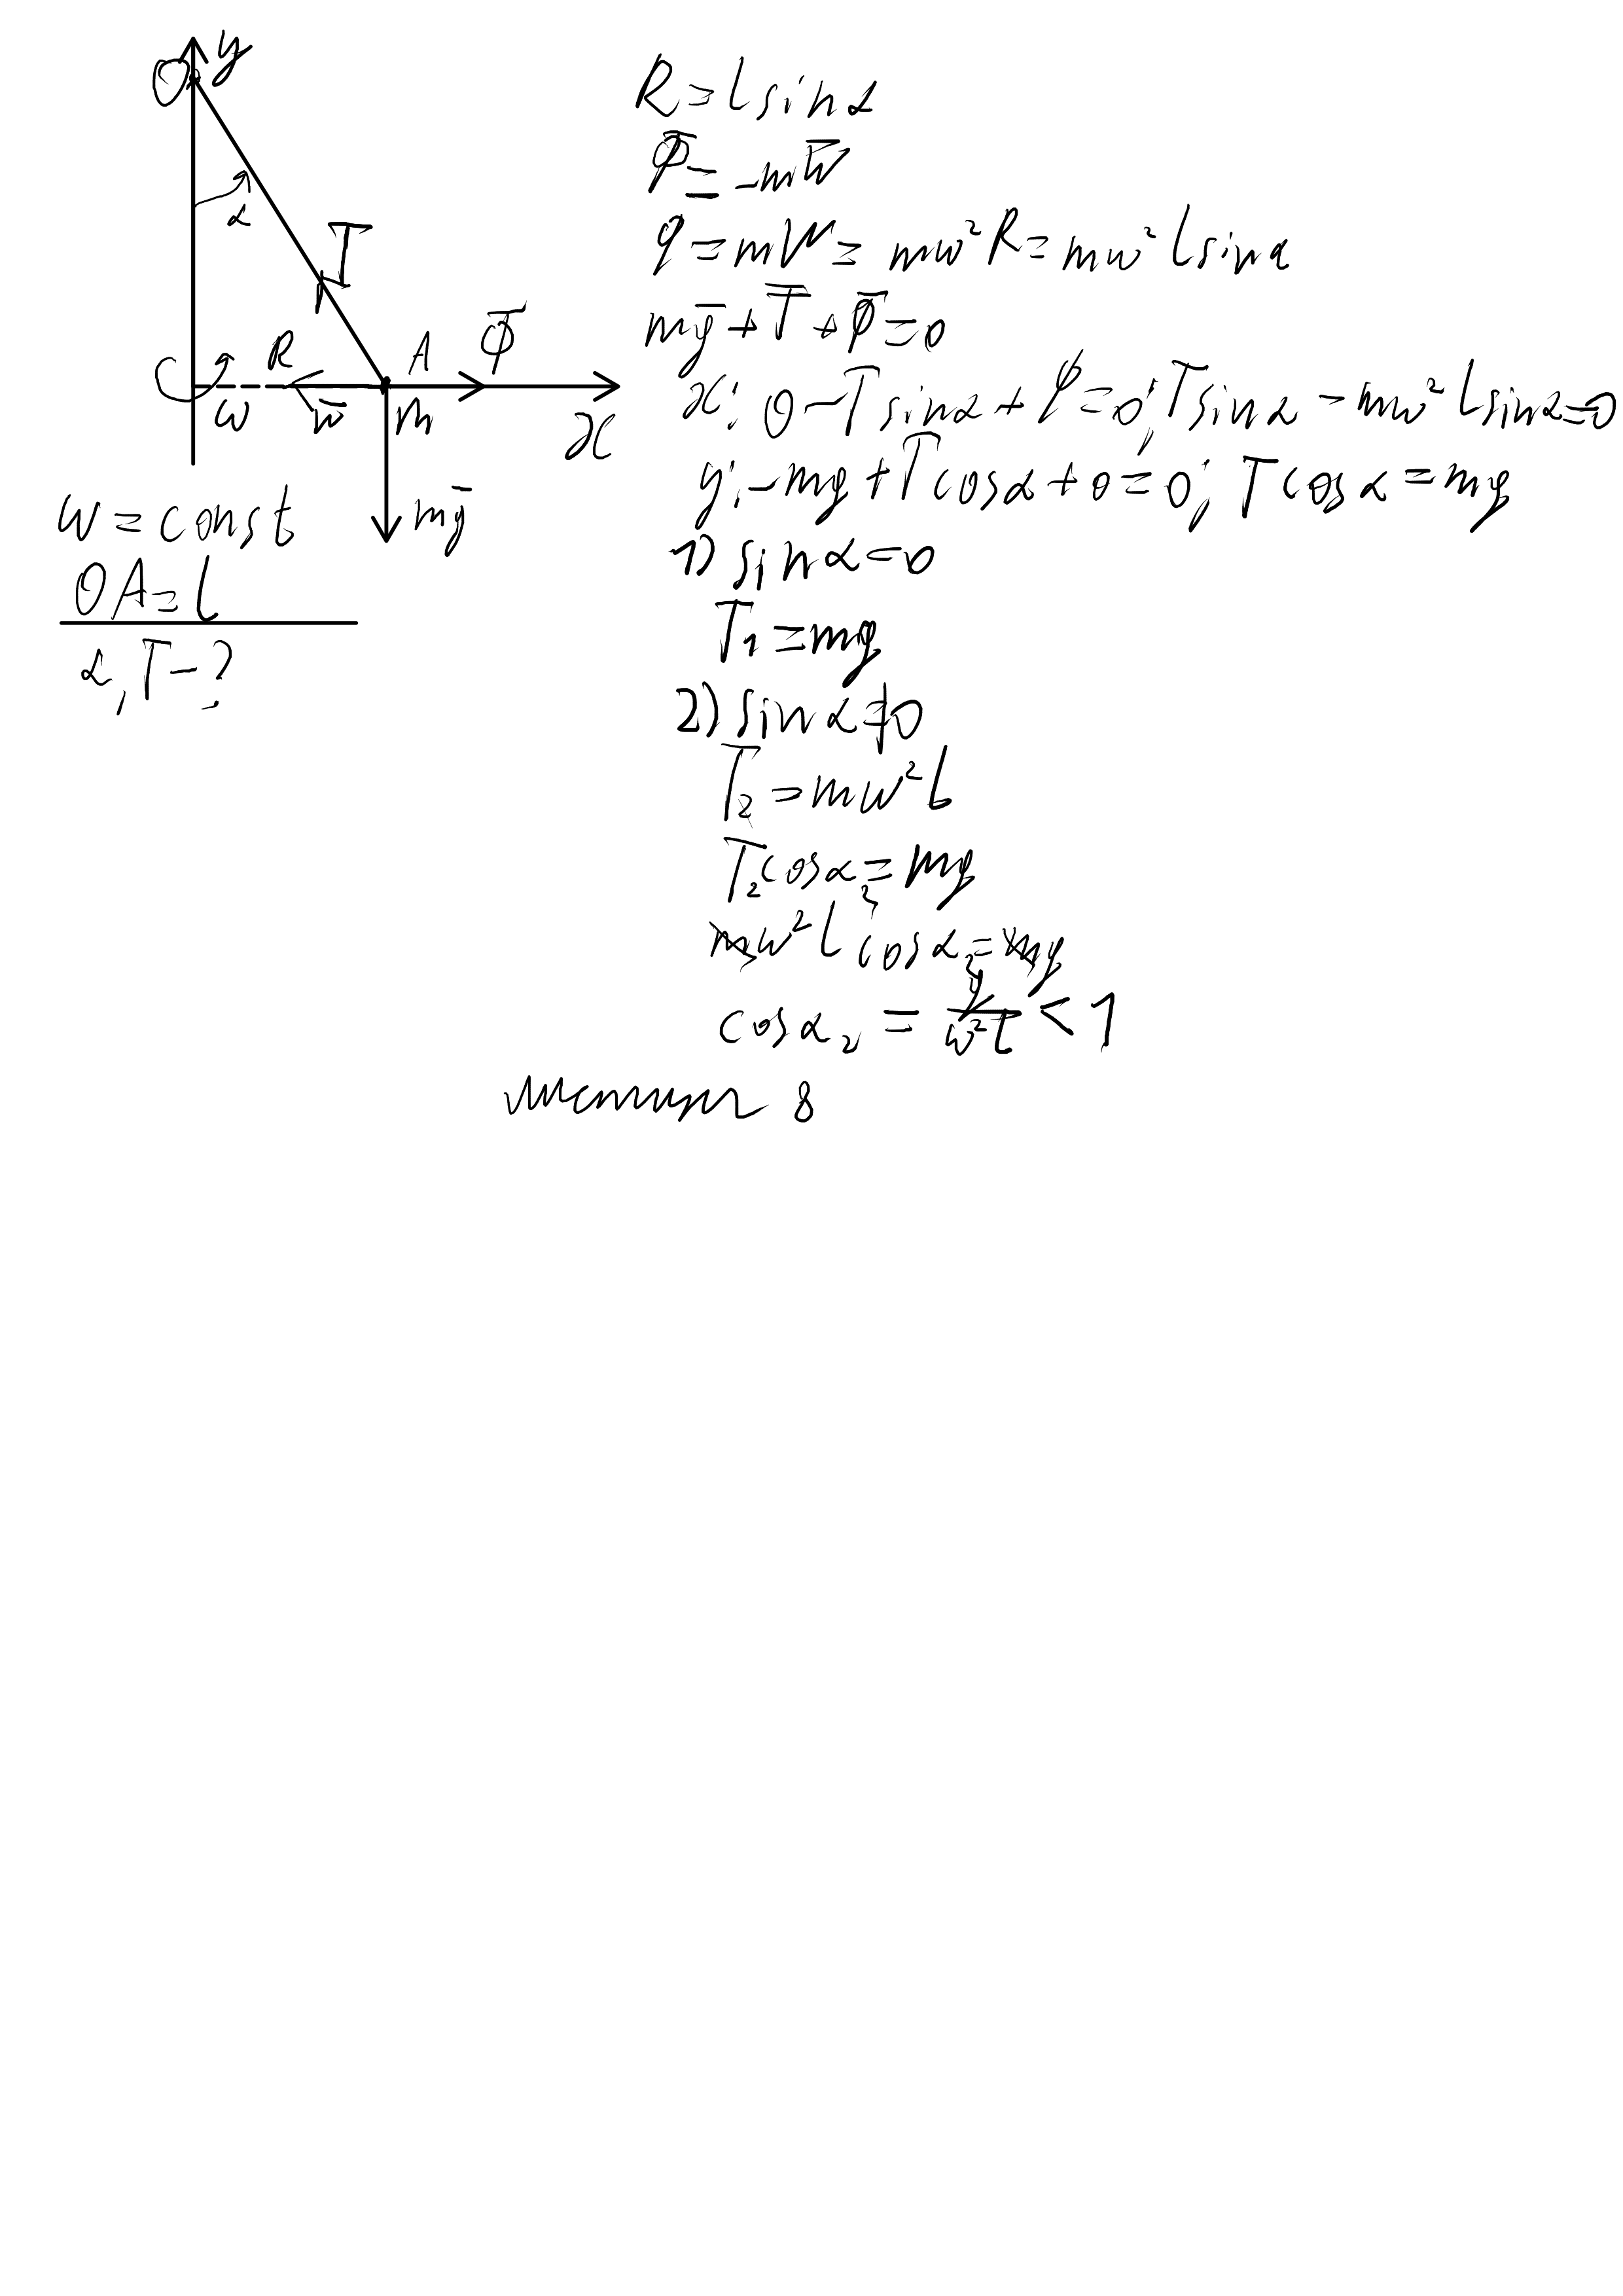 O y
α
T̄
R A Φ̄
ω w̄ m x
mḡ
ω = const
OA = l
α, T - ?
R = l sin α
Φ̄ = -m w̄
Φ = mW = mω² R = mω² l sin α
mḡ + T̄ + Φ̄ = 0
x: 0 - T sin α + Φ = 0; T sin α - mω² l sin α = 0
y: -mg + T cos α + 0 = 0; T cos α = mg
1) sin α = 0
T₁ = mg
2) sin α ≠ 0
T₂ = mω² l
T₂ cos α₂ = mg
mω² l cos α₂ = mg
cos α₂ = g/ω² l < 1
8